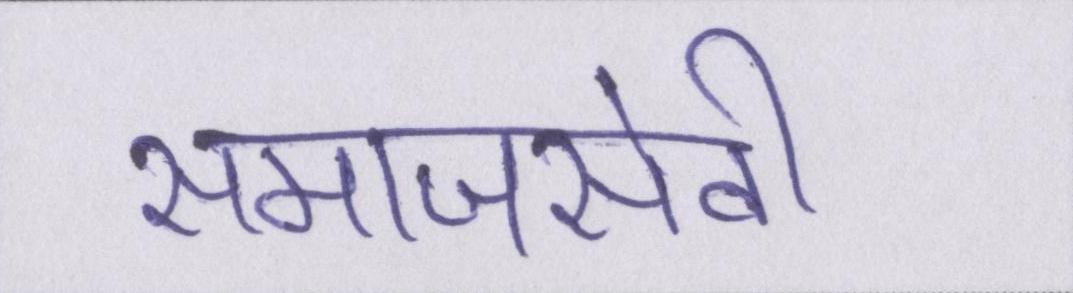 समाजसेवी